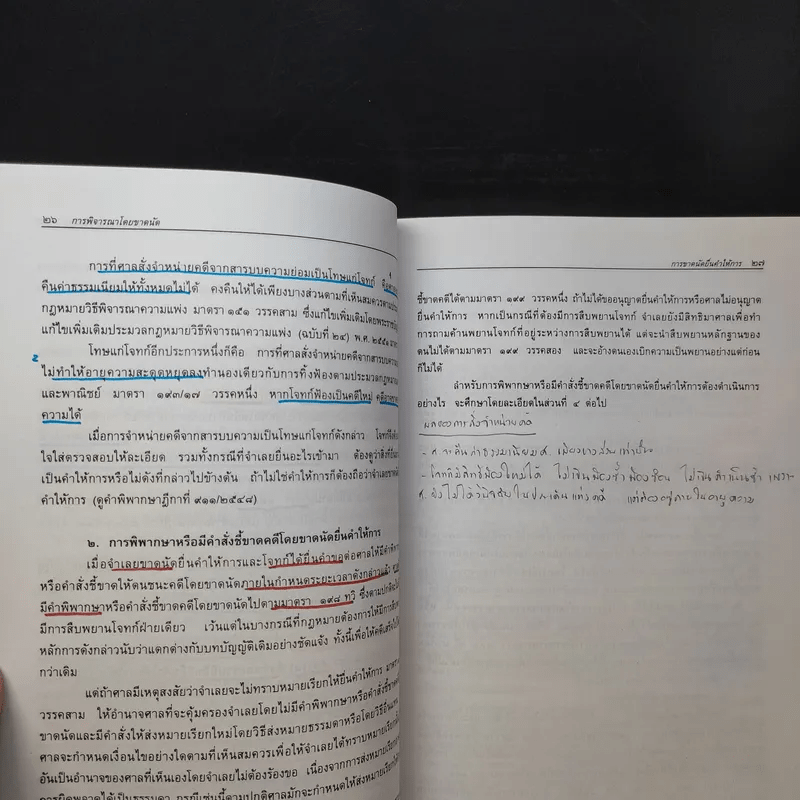 ๒๖ การพิจารณาโดยขาดนัด
การที่ศาลสั่งจำหน่ายคดีจากสารบบความย่อมเป็นโทษแก่โจทก์
คืนค่าธรรมเนียมให้ทั้งหมดไม่ได้ คงคืนให้ได้เพียงบางส่วนตามที่เห็นสมควรตาม
กฎหมายวิธีพิจารณาความแพ่ง มาตรา ๑๕๑ วรรคสาม ซึ่งแก้ไขเพิ่มเติมโดย
แก้ไขเพิ่มเติมประมวลกฎหมายวิธีพิจารณาความแพ่ง (ฉบับที่ ๒๔) พ.ศ. ๒๕๕๑
โทษแก่โจทก์อีกประการหนึ่งก็คือ การที่ศาลสั่งจำหน่ายคดีจากสารบบความ
ไม่ทำให้อายุความสะดุดหยุดลงทำนองเดียวกับการทิ้งฟ้องตามประมวลกฎหมาย
และพาณิชย์ มาตรา ๑๙๓/๑๗ วรรคหนึ่ง หากโจทก์ฟ้องเป็นคดีใหม่
ความได้
เมื่อการจำหน่ายคดีจากสารบบความเป็นโทษแก่โจทก์ดังกล่าว
ใจใส่ตรวจสอบให้ละเอียด รวมทั้งกรณีที่จำเลยยื่นอะไรเข้ามา ต้องดูว่าสิ่งที่ยื่น
เป็นคำให้การหรือไม่ดังที่กล่าวไปข้างต้น ถ้าไม่ใช่คำให้การก็ต้องถือว่าจำเลยขาด
คำให้การ (ดูคำพิพากษาฎีกาที่ ๙๑๑/๒๕๔๘)
๒. การพิพากษาหรือมีคำสั่งชี้ขาดคดีโดยขาดนัดยื่นคำให้การ
เมื่อจำเลยขาดนัดยื่นคำให้การและโจทก์ได้ยื่นคำขอต่อศาลให้มีคำ
หรือคำสั่งชี้ขาดให้ตนชนะคดีโดยขาดนัดภายในกำหนดระยะเวลาดังกล่าวแล้ว
มีคำพิพากษาหรือคำสั่งชี้ขาดคดีโดยขาดนัดไปตามมาตรา ๑๙๘ ทวิ ซึ่งตามปกติ
มีการสืบพยานโจทก์ฝ่ายเดียว เว้นแต่ในบางกรณีที่กฎหมายต้องการให้มีการ
หลักการดังกล่าวนับว่าแตกต่างกับบทบัญญัติเดิมอย่างชัดแจ้ง ทั้งนี้เพื่อให้คดี
กว่าเดิม
แต่ถ้าศาลมีเหตุสงสัยว่าจำเลยจะไม่ทราบหมายเรียกให้ยื่นคำให้การ
วรรคสาม ให้อำนาจศาลที่จะคุ้มครองจำเลยโดยไม่มีคำพิพากษาหรือคำสั่งชี้
ขาดนัดและมีคำสั่งให้ส่งหมายเรียกใหม่โดยวิธีส่งหมายธรรมดาหรือโดยวิธีอื่น
ศาลจะกำหนดเงื่อนไขอย่างใดตามที่เห็นสมควรเพื่อให้จำเลยได้ทราบหมายเรียก
อันเป็นอำนาจของศาลที่เห็นเองโดยจำเลยไม่ต้องร้องขอ เนื่องจากการส่งหมายเรียก
การผิดพลาดได้เป็นธรรมดา กรณีเช่นนี้ตามปกติศาลมักจะกำหนดให้ส่งหมายเรียก
การขาดนัดยื่นคำให้การ ๒๗
ชี้ขาดคดีได้ตามมาตรา ๑๙๙ วรรคหนึ่ง ถ้าไม่ได้ขออนุญาตยื่นคำให้การหรือศาลไม่อนุญาต
ยื่นคำให้การ หากเป็นกรณีที่ต้องมีการสืบพยานโจทก์ จำเลยยังมีสิทธิมาศาลเพื่อทำ
การถามค้านพยานโจทก์ที่อยู่ระหว่างการสืบพยานได้ แต่จะนำสืบพยานหลักฐานของ
ตนไม่ได้ตามมาตรา ๑๙๙ วรรคสอง และจะอ้างตนเองเบิกความเป็นพยานอย่างแต่ก่อน
ก็ไม่ได้
สำหรับการพิพากษาหรือมีคำสั่งชี้ขาดคดีโดยขาดนัดยื่นคำให้การต้องดำเนินการ
อย่างไร จะศึกษาโดยละเอียดในส่วนที่ ๔ ต่อไป
ผลของการสั่งจำหน่ายคดี
- ศ. จะคืนค่าธรรมเนียมศ. เพียงบางส่วนเท่านั้น
- โจทก์มีสิทธิฟ้องใหม่ได้ ไม่เป็นฟ้องซ้ำ ฟ้องซ้อน ไม่เป็นดำเนินซ้ำ เพราะ
ศ. ยังไม่ได้วินิจฉัยในประเด็นแห่งคดี แต่ต้องอยู่ภายในอายุความ